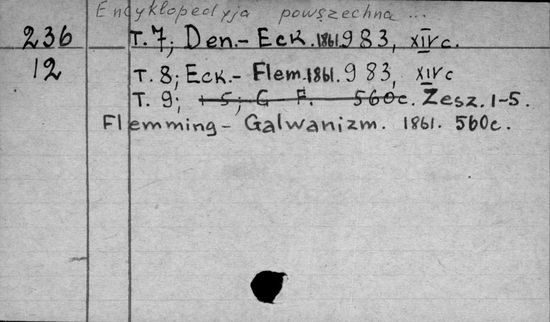 Encyklopedyja powszechna ...
236 T. 7; Den. - Eck. 1861. 983, XIV c.
12 T. 8; Eck. - Flem. 1861. 983, XIV c
T. 9; 1-5; G F. 560c. Zesz. 1-5.
Flemming - Galwanizm. 1861. 560c.